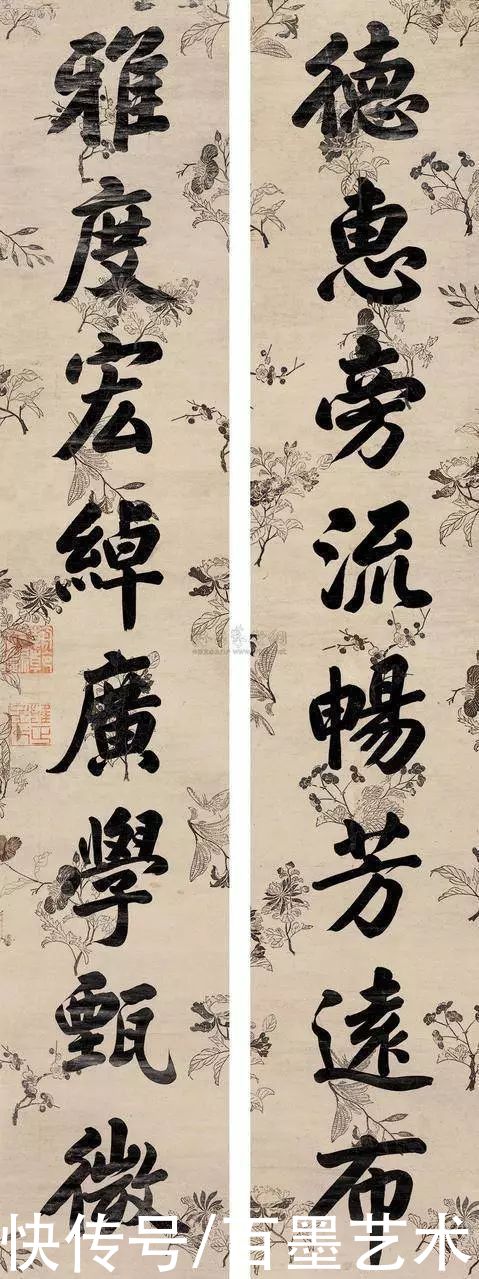 德惠旁流暢芳遠布
雅度宏綽廣學甄微
快传号/百墨艺术